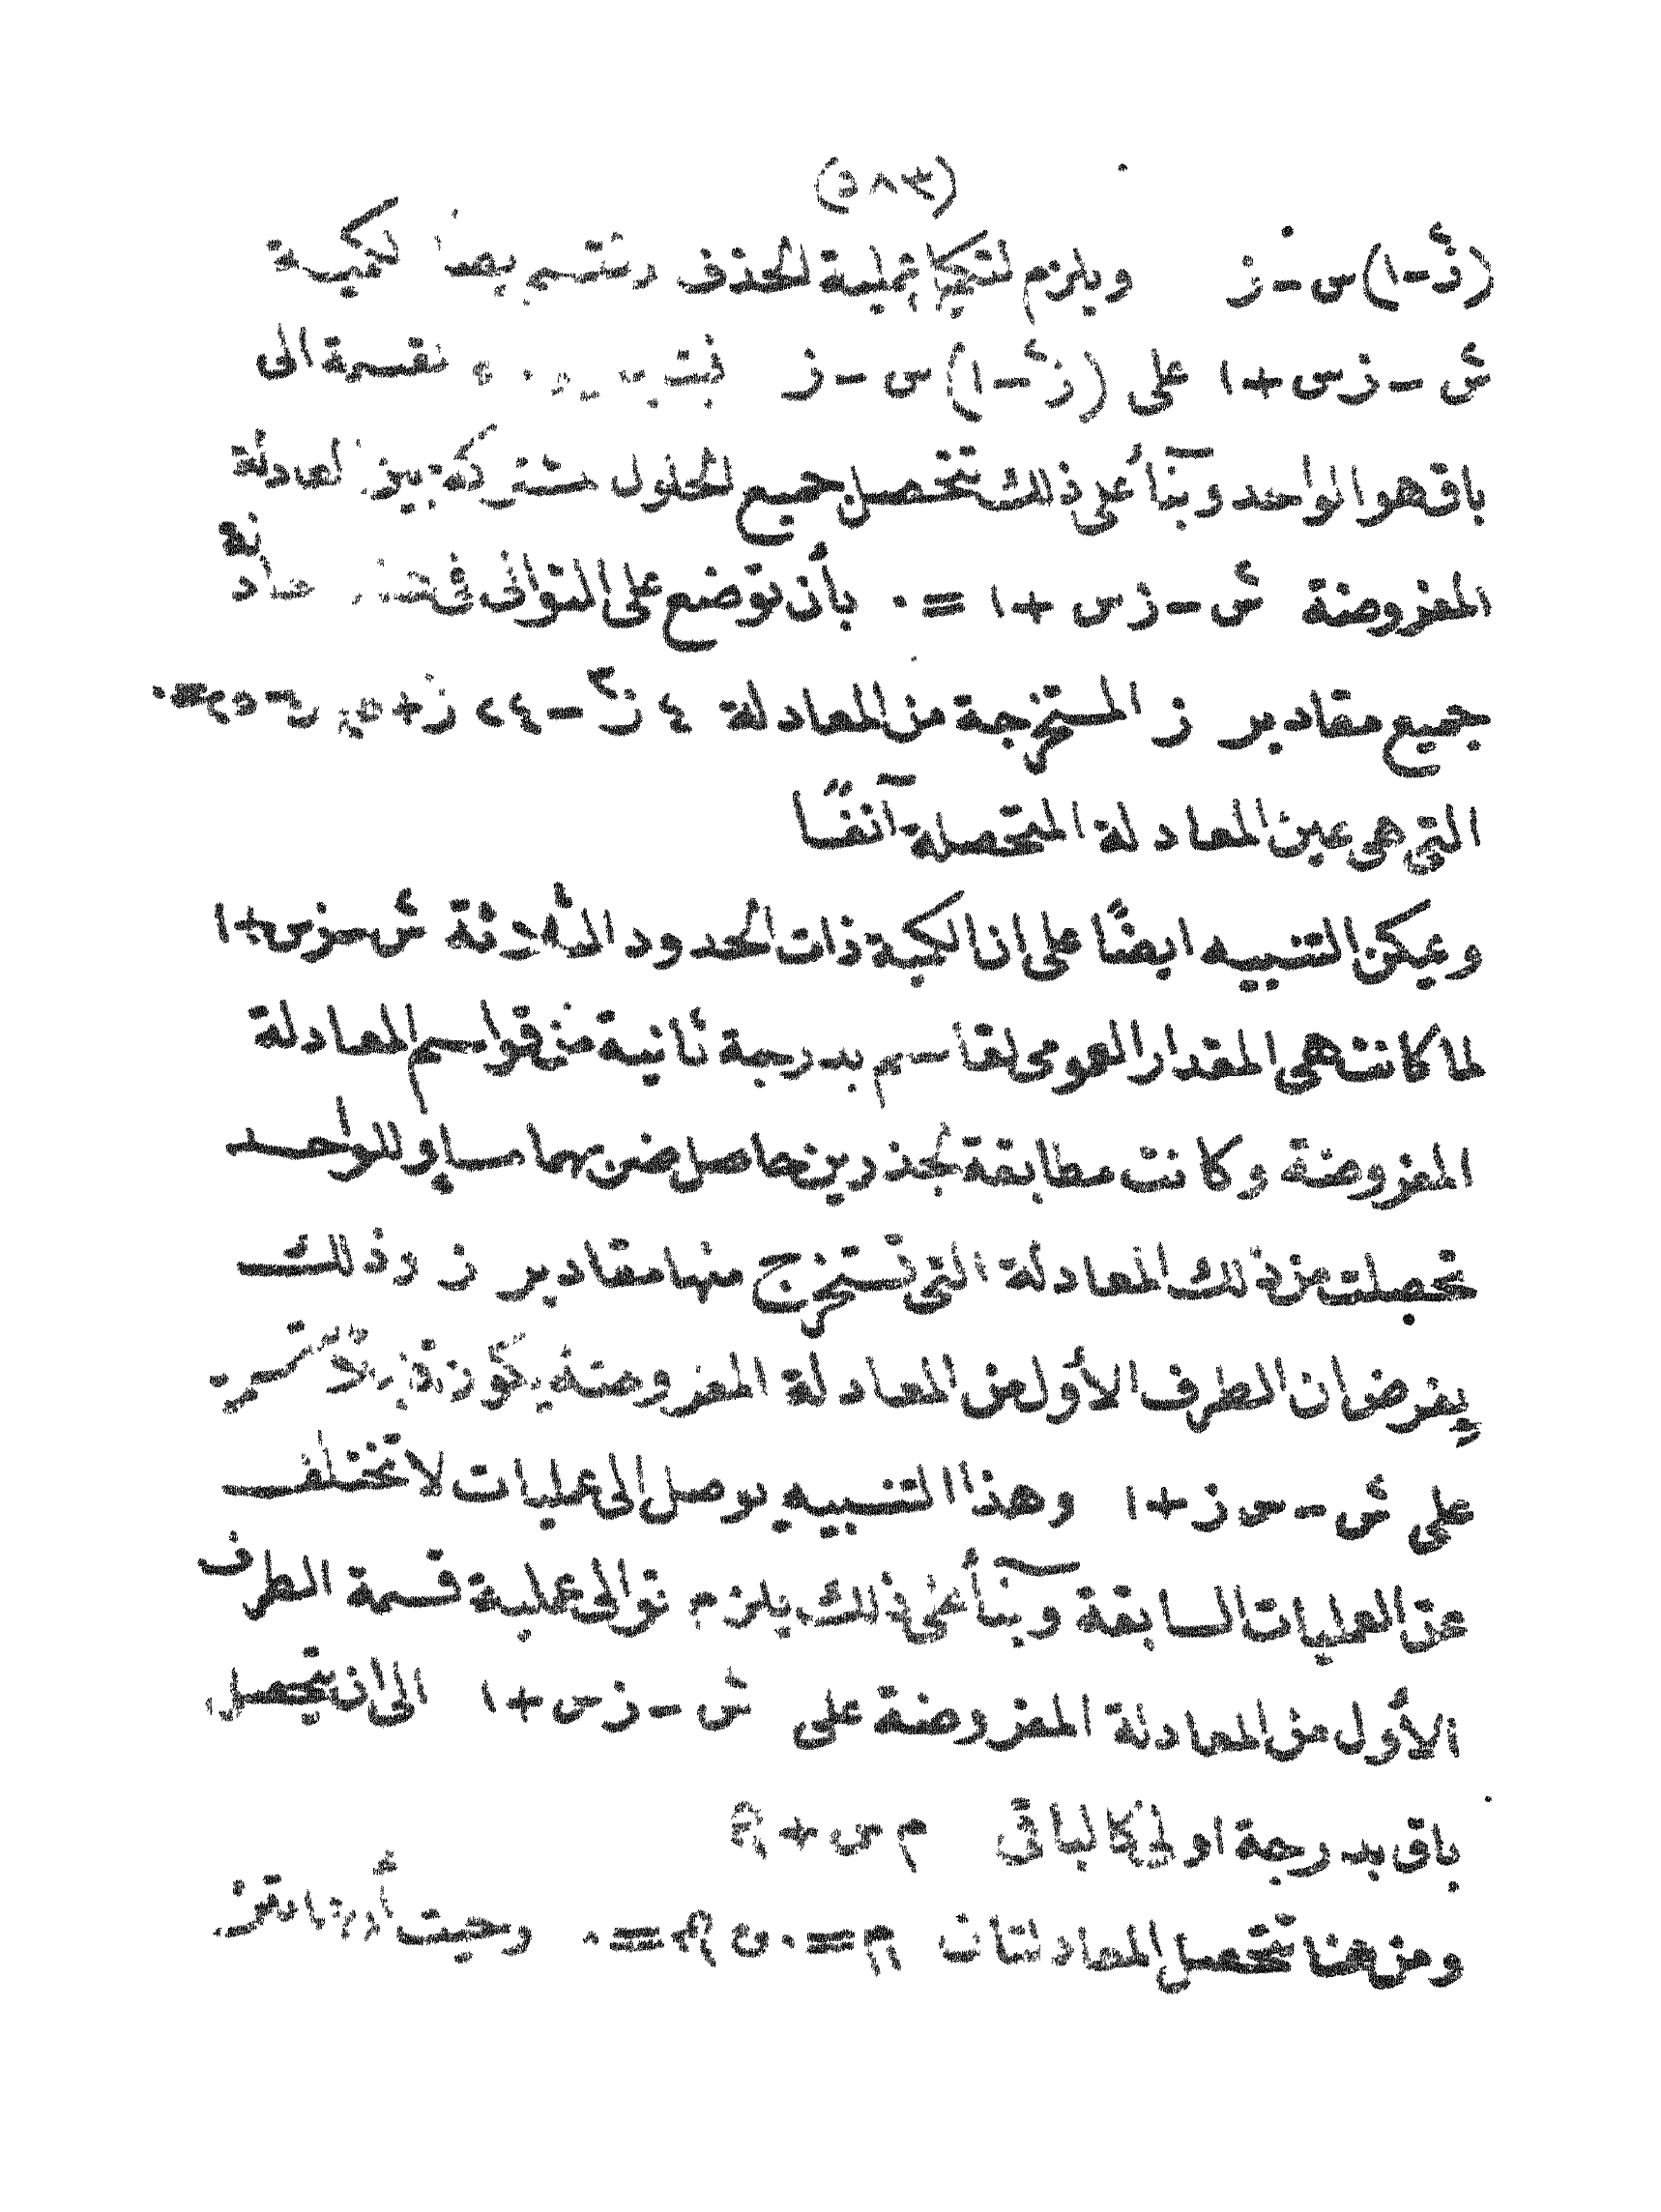 (٣٨٥)
(ز٢-١)س-ز ويلزم لتتميم عملية الحذف ان تقسم ايضا الكمية
س٢-زس+١ على (ز٢-١)س-ز القسمة الى
باق هو الواحد وبنآء على ذلك تتحصل جميع الحلول المشتركة بين المعادلة
المفروضة س٢-زس+١=٠ بأن توضع على التوالى فى هذه المعادلة
جميع مقادير ز المستخرجة من المعادلة ٤ز٣-٢٤ز٢+ ز-٢٥=٠
التى هى عين المعادلة المتحصلة آنفًا
ويمكن التنبيه ايضًا على ان الكمية ذات الحدود الثلاثة س٢-زس+١
لما كانت هى المقدار العومى لقاسم بدرجة ثانية من قواسم المعادلة
المفروضة وكانت مطابقة لجذرين حاصل ضربهما مساوٍ للواحد
تحصلت من ذلك المعادلة التى تستخرج منها مقادير ز وذلك
بفرض ان الطرف الأول من المعادلة المفروضة يكون قابلا للقسمة
على س٢-س ز+١ وهذا التنبيه يوصل الى عمليات لا تختلف
عن العمليات السابقة وبنآء على ذلك يلزم توالى عملية قسمة الطرف
الأول من المعادلة المفروضة على س٢-زس+١ الى ان يتحصل
باق بدرجة اولى كالباقى م س+
ومن هنا تتحصل المعادلتان م=٠ و =٠ وحيث